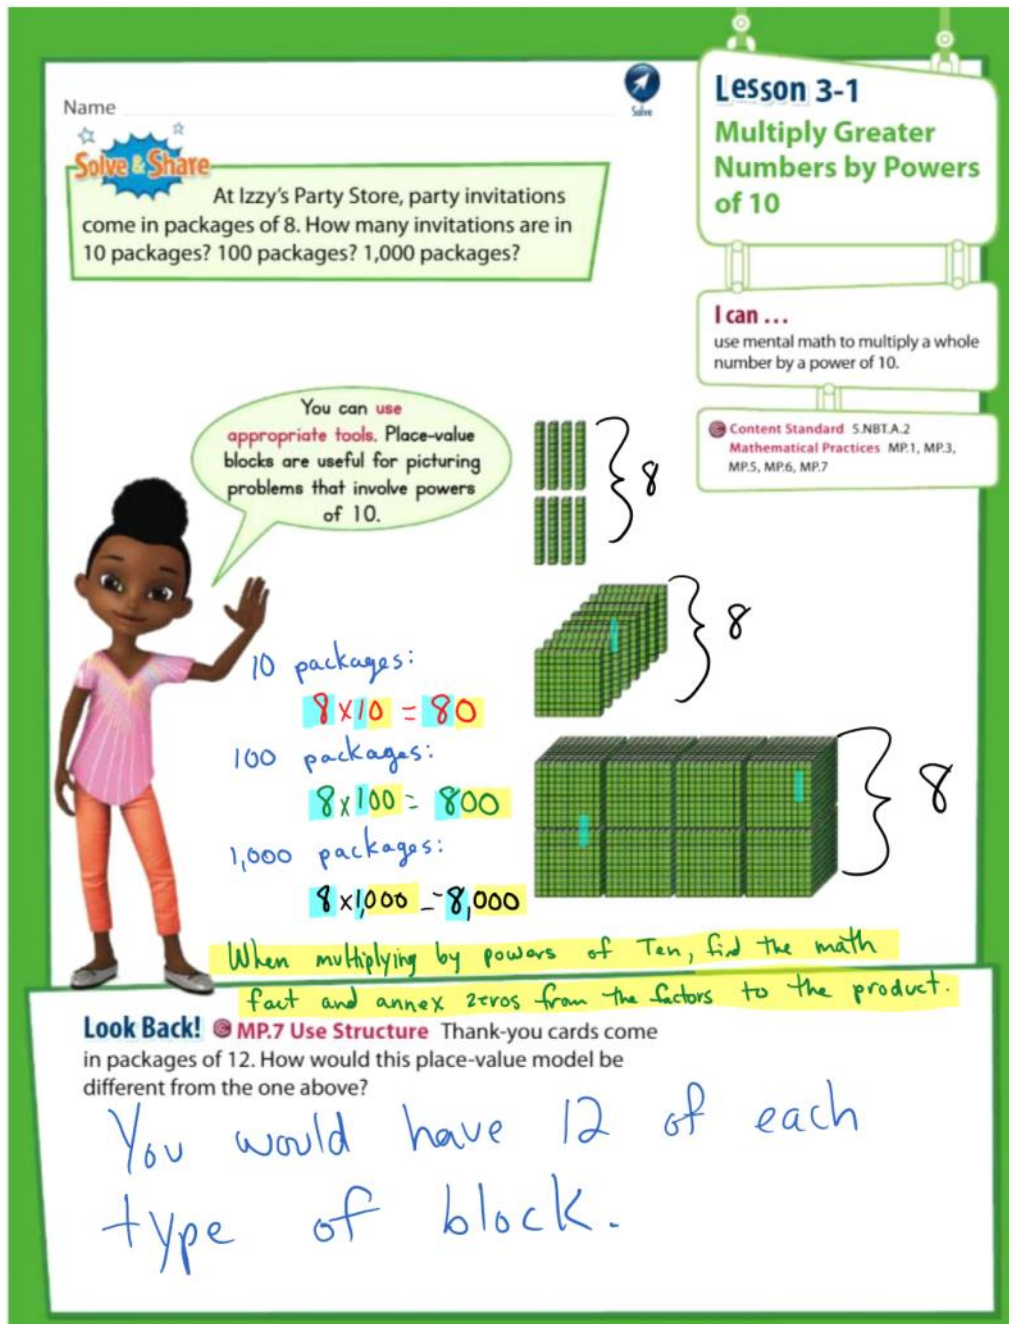 Name
Solve
Solve & Share
At Izzy's Party Store, party invitations
come in packages of 8. How many invitations are in
10 packages? 100 packages? 1,000 packages?
Lesson 3-1
Multiply Greater
Numbers by Powers
of 10
I can ...
use mental math to multiply a whole
number by a power of 10.
Content Standard 5.NBT.A.2
Mathematical Practices MP.1, MP.3,
MP.5, MP.6, MP.7
You can use
appropriate tools. Place-value
blocks are useful for picturing
problems that involve powers
of 10.
8
8
8
10 packages:
8 x 10 = 80
100 packages:
8 x 100 = 800
1,000 packages:
8 x 1,000 = 8,000
When multiplying by powers of Ten, find the math
fact and annex zeros from the factors to the product.
Look Back! MP.7 Use Structure Thank-you cards come
in packages of 12. How would this place-value model be
different from the one above?
You would have 12 of each
type of block.